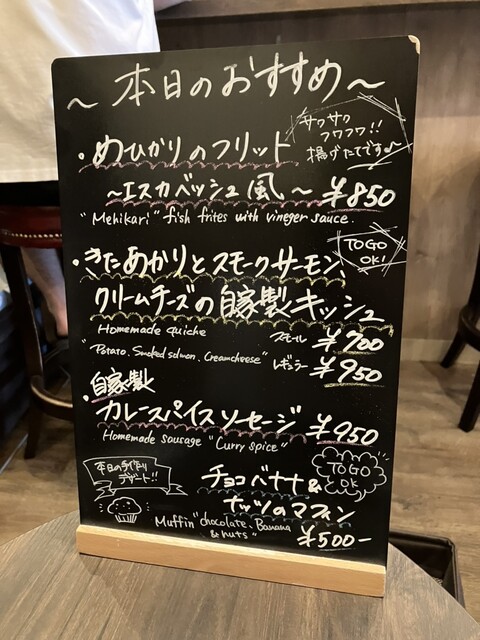 ~本日のおすすめ~
サクサク
フワフワ!!
揚げたてです〜
・めひかりのフリット
~エスカベッシュ風~ ¥850
"Mehikari" fish frites with vineger sauce.
TOGO
OK!
・きたあかりとスモークサーモン、
クリームチーズの自家製キッシュ
Homemade quiche スモール ¥700
"Potato. Smoked salmon. Creamcheese" レギュラー ¥950
・自家製
カレースパイスソーセージ ¥950
Homemade sausage "Curry spice"
TOGO
OK
本日の手作り
デザート!!
チョコバナナ&
ナッツのマフィン
Muffin "chocolate, Banana
& nuts" ¥500-